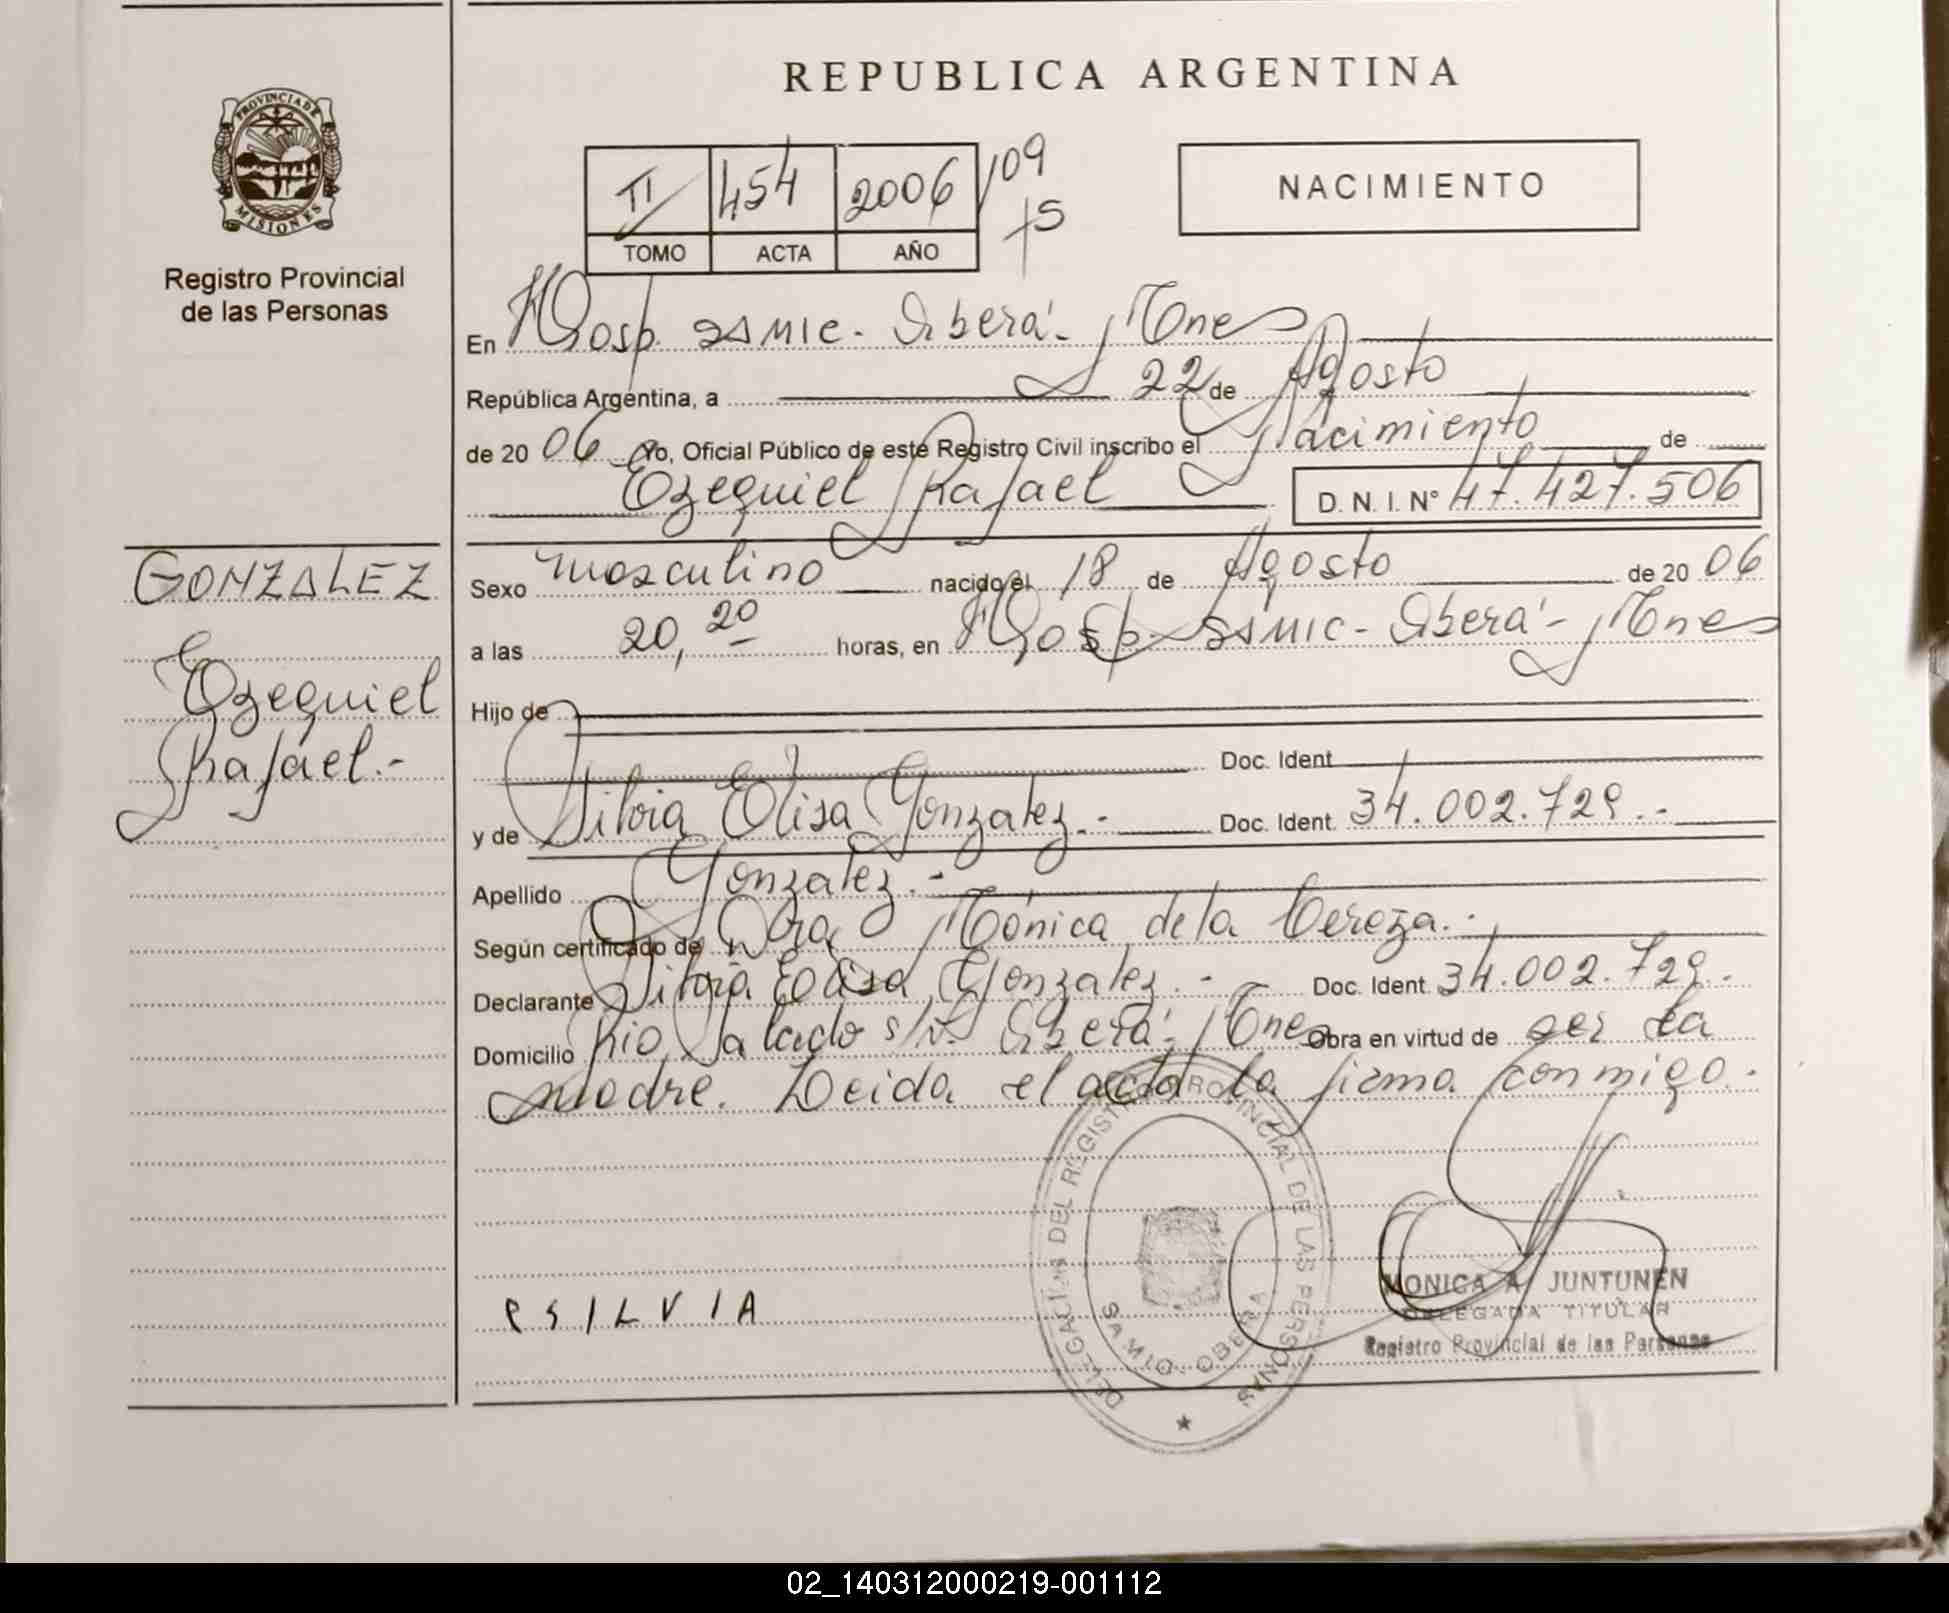 REPUBLICA ARGENTINA
PROVINCIA DE
MISIONES
Registro Provincial
de las Personas
II 454 2006 109
TOMO ACTA AÑO
NACIMIENTO
En Hosp. SAMIC - Oberá - Mnes
República Argentina, a 22 de Agosto
de 2006 Yo, Oficial Público de este Registro Civil inscribo el Nacimiento de
Ezequiel Rafael D. N. I. N° 47.427.506
GONZALEZ
Ezequiel
Rafael.-
Sexo masculino nacido el 18 de Agosto de 2006
a las 20,20 horas, en Hosp. SAMIC - Oberá - Mnes
Hijo de
Doc. Ident
y de Silvia Elisa Gonzalez.- Doc. Ident. 34.002.729.-
Apellido Gonzalez.-
Según certificado de Dra Mónica de la Cereza.-
Declarante Silvia Elisa Gonzalez.- Doc. Ident. 34.002.729.-
Domicilio Rio Salado s/n. Oberá - Mnes Obra en virtud de ser la
madre. Leida el acta la firma conmigo.
SILVIA
DELEGACION DEL REGISTRO PROVINCIAL DE LAS PERSONAS
SAMIC OBERA
MONICA A. JUNTUNEN
DELEGADA TITULAR
Registro Provincial de las Personas
02_140312000219-001112